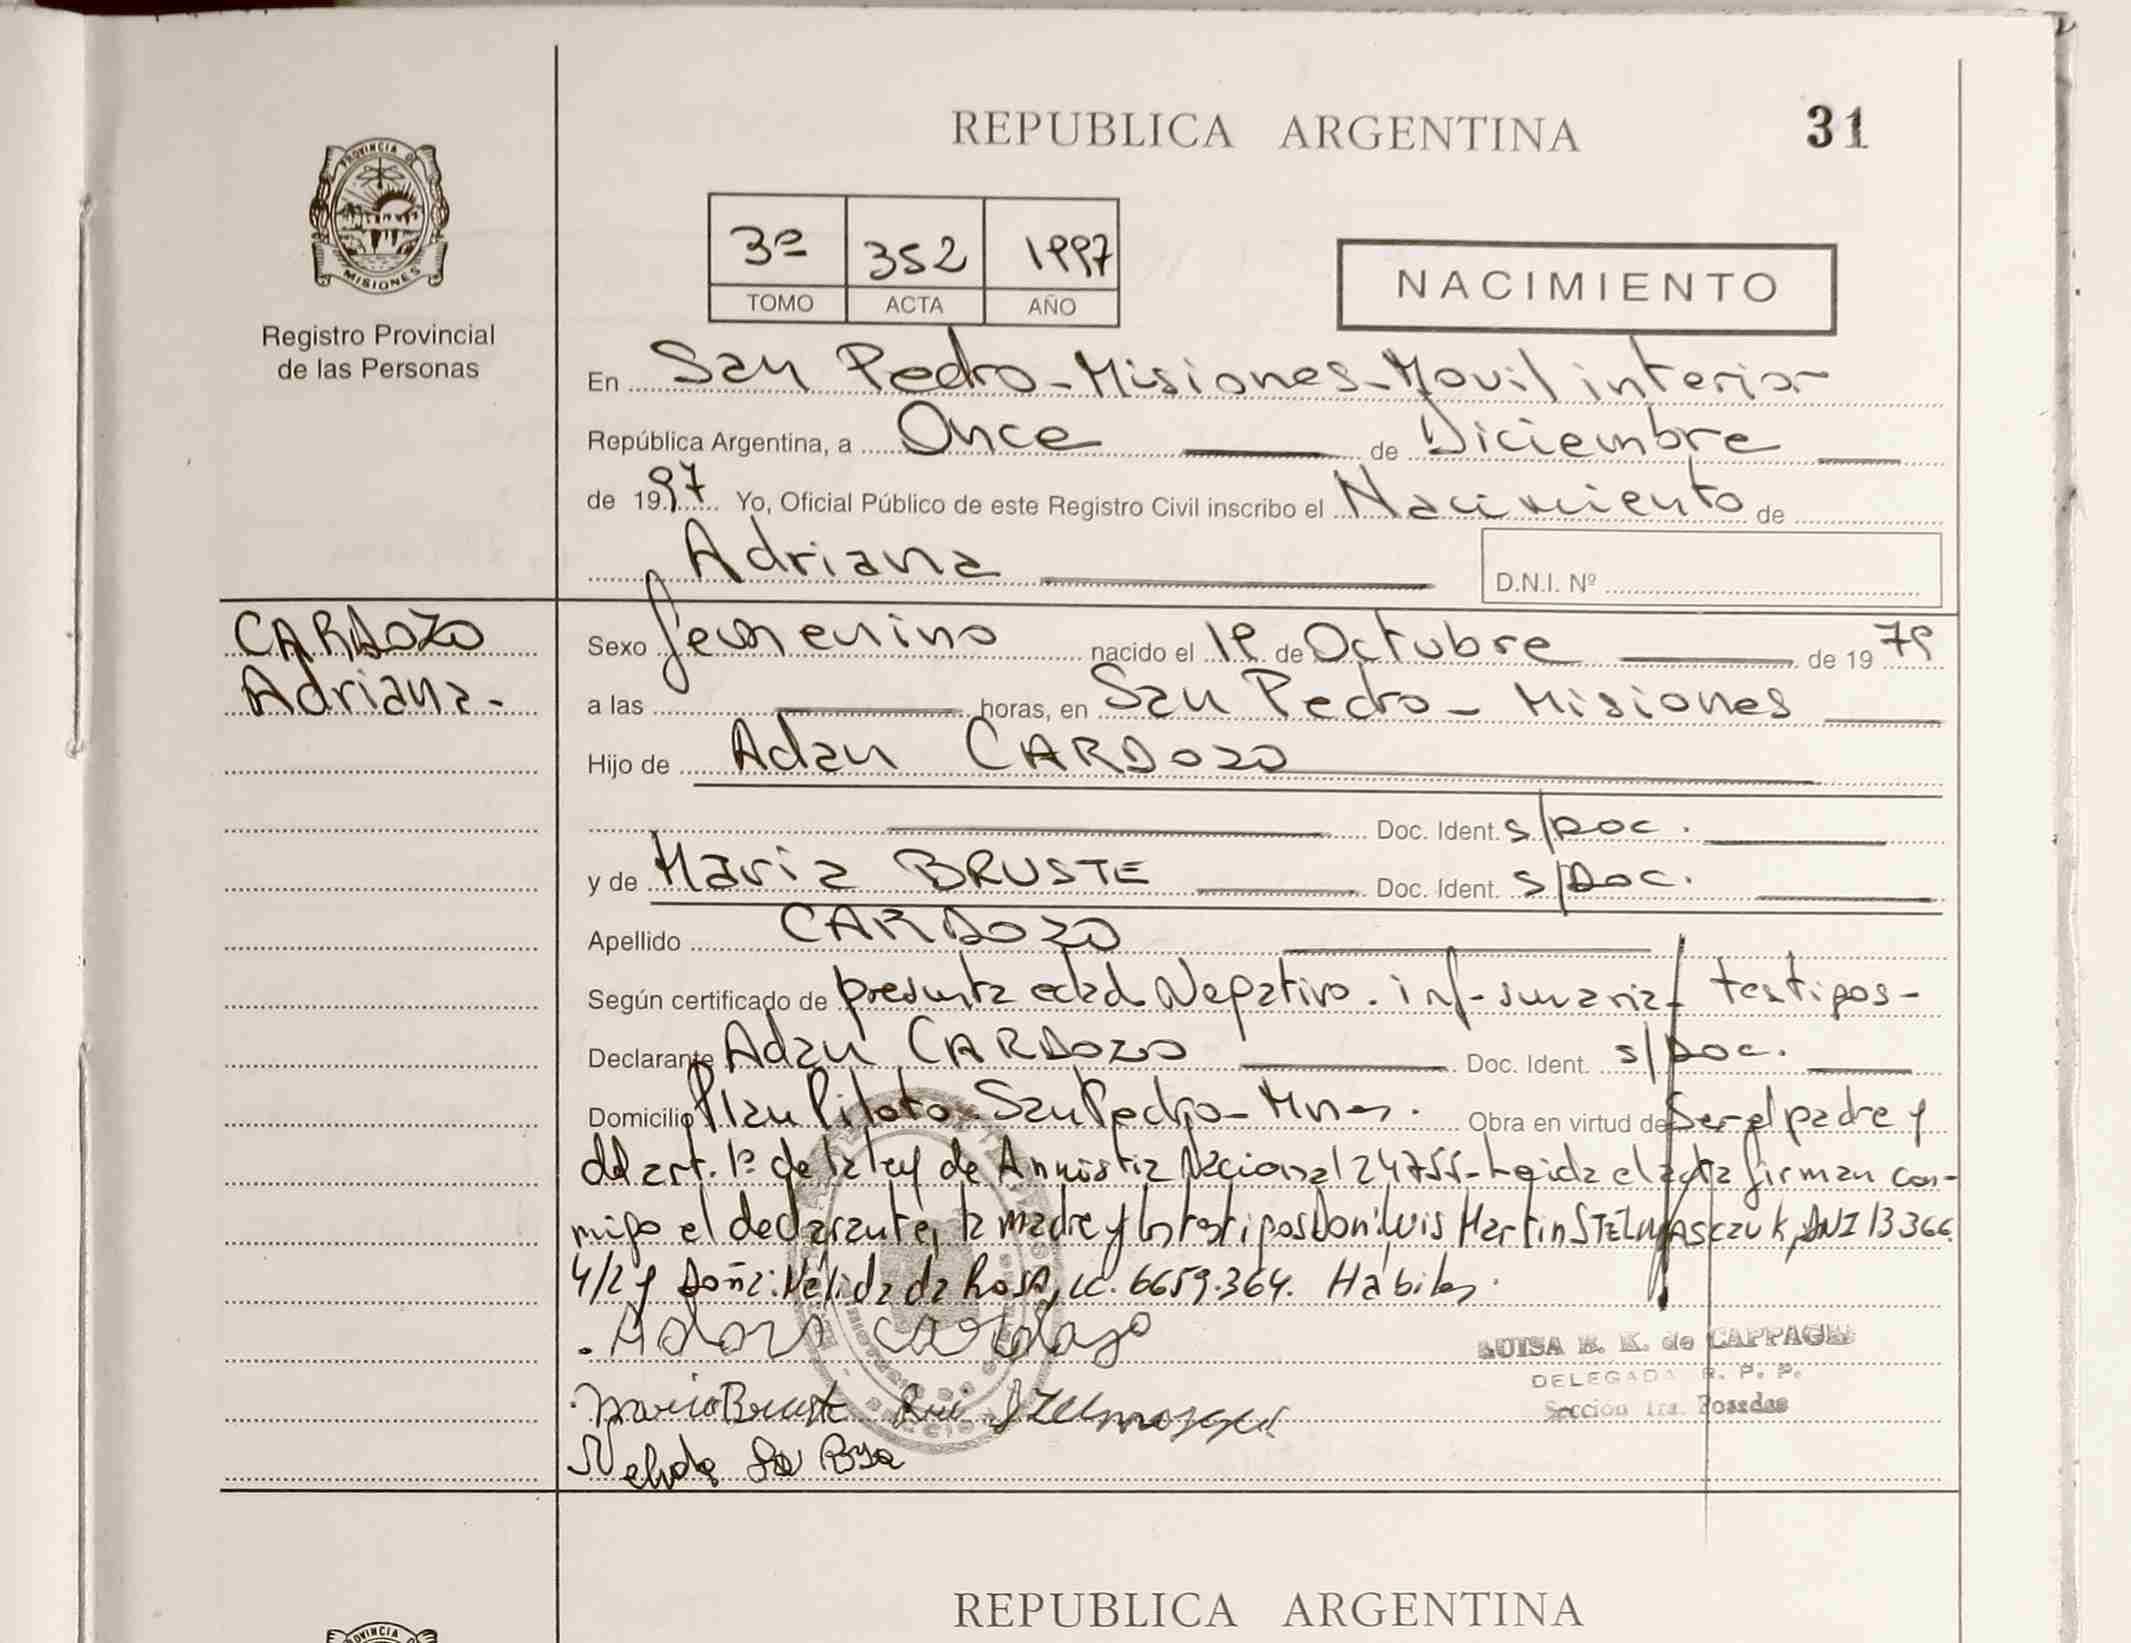 REPUBLICA ARGENTINA
31
PROVINCIA DE
MISIONES
Registro Provincial
de las Personas
3º 352 1997
TOMO ACTA AÑO
NACIMIENTO
En San Pedro - Misiones - Movil interior
República Argentina, a Once de Diciembre
de 1997 Yo, Oficial Público de este Registro Civil inscribo el Nacimiento de
Adriana
D.N.I. Nº
CARDOZO
Adriana.-
Sexo femenino nacido el 1º de Octubre de 1979
a las horas, en San Pedro - Misiones
Hijo de Adan CARDOZO
Doc. Ident. s/Doc.
y de Maria BRUSTE Doc. Ident. s/Doc.
Apellido CARDOZO
Según certificado de presunta edad Negativo. inf-sumaria testigos-
Declarante Adan CARDOZO Doc. Ident. s/Doc.
Domicilio Plan Piloto - San Pedro - Mnes. Obra en virtud de Ser el padre y
del art. 1º de la ley de Amnistia Nacional 24755- Leida el acta firman con-
migo el declarante, la madre y los testigos Don: Luis Martin STELMASCZUK, DNI 13366
412 y Doña: Nélida da Rosa, LC. 6659.364. Hábiles.
Adan Cardozo
LUISA K. K. de CAPPAGLI
DELEGADA R. P. P.
Sección 1ra. Posadas
Maria Bruste
Nelida Da Rosa
REPUBLICA ARGENTINA
PROVINCIA